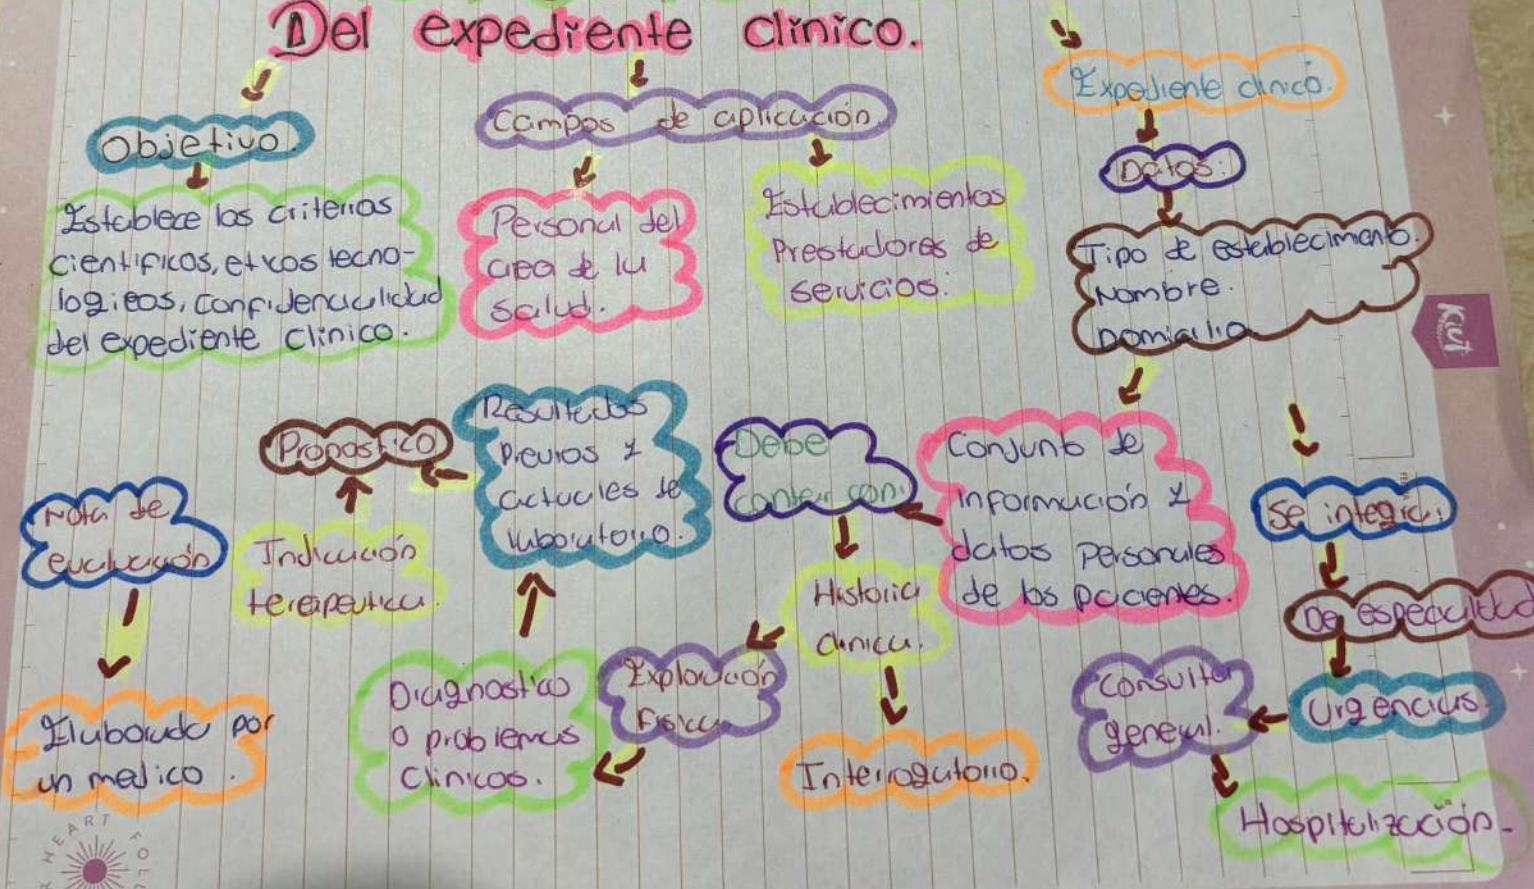 Del expediente clinico.
Objetivo.
Establece los criterios
cientificos, eticos tecno-
logicos, confidencialidad
del expediente clinico.
Campos de aplicación
Personal del
area de la
salud.
Establecimientos
Prestadores de
servicios.
Expediente clinico.
Datos:
Tipo de establecimiento.
Nombre.
Domicilio
Conjunto de
información y
datos personales
de los pacientes.
Debe
contar con:
Historia
clinica.
Interrogatorio.
Exploración
Fisica
Diagnostico
o problemas
clinicos.
Resultados
previos y
actuales de
laboratorio.
Pronostico
Indicación
terapeutica.
Nota de
evaluación
Elaborado por
un medico.
Se integra:
De especialidad
Urgencias.
Consulta
general.
Hospitalización.
Kiut
HEART
FOLL